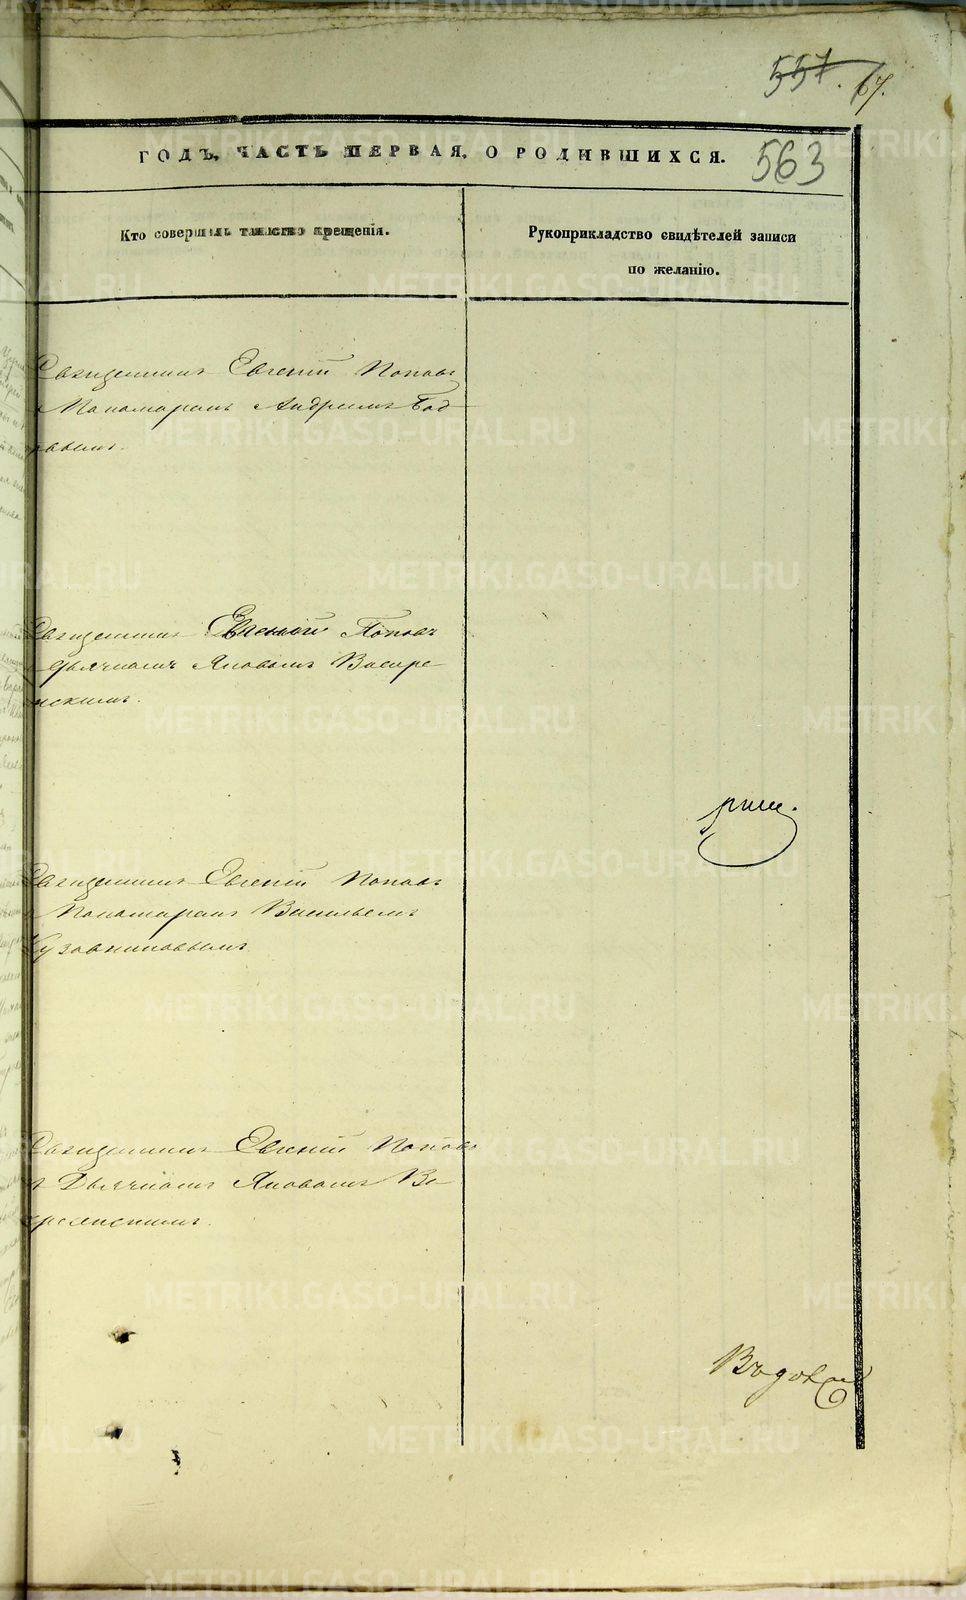 557. 67.
ГОДЪ, ЧАСТЬ ПЕРВАЯ, О РОДИВШИХСЯ. 563
Кто совершалъ таинство крещенія.
Рукоприкладство свидѣтелей записи
по желанію.
Священникъ Евгеній Поповъ
Пономаремъ Андреемъ
Священникъ Евгеній Поповъ
Дьячкомъ Яковомъ Воскре-
нскимъ.
Священникъ Евгеній Поповъ
Пономаремъ Васильемъ
Кузовниковымъ.
Священникъ Евгеній Поповъ
Дьячкомъ Яковомъ Во-
скресенскимъ.
METRIKI.GASO-URAL.RU